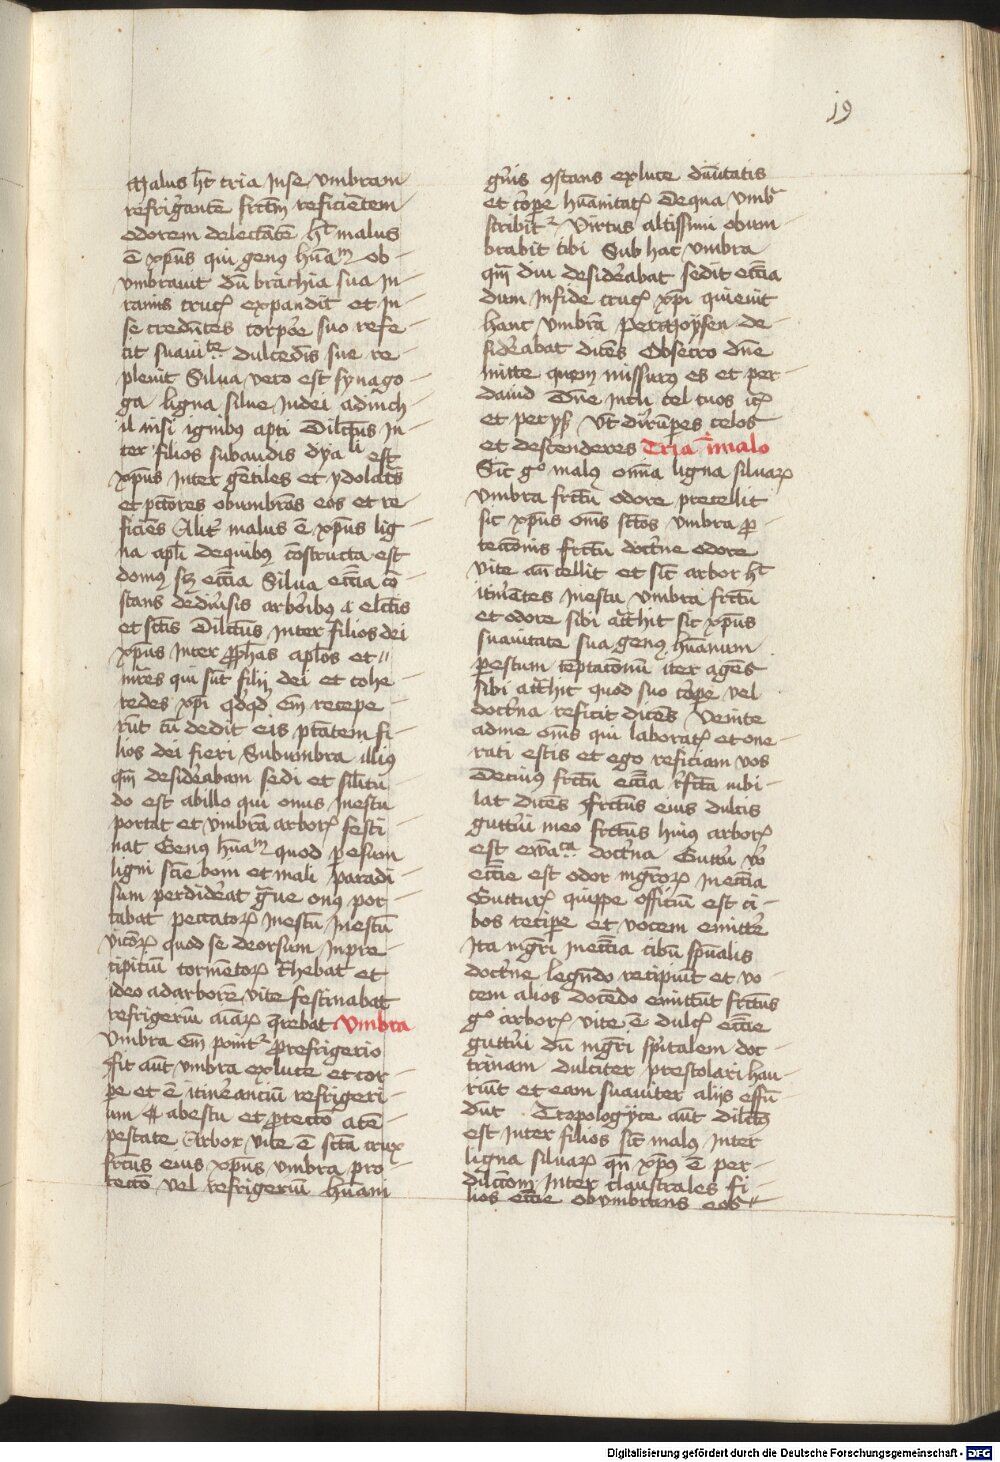 19
Malus hꝫ tria inse vmbram
refrigantē fructū reficiētem
odorem delectātē hꝫ malus
ē xpūs qui genus hūaᵐ ob-
vmbrauit dū brachia sua in
ramis crucꝭ expandit et in-
se credētes corpore suo refe-
cit suauitate dulcedīs sue re-
pleuit Silua vero est synago-
ga ligna silue iudei adnich-
il nisi ignibus apti Dilcūs in-
ter filios subaudis dyaˡⁱ est
xpūs inter gētiles et ydolatͣs
et pctōres obumbrās eos et re-
ficiēs Alitͬ malus ē xpūs lig-
na apłi dequibus cōstructa est
domus scꝫ eccīa Silua eccīa cō-
stans dediūsis arboribus et elcīs
et sctīs Dilcūs inter filios dei
xpūs inter ꝓphas aplos et
mrēs qui sūt filij dei et cohe-
redes xpi qdqd em̄ recepe-
rūt eū dedit eis ptātem fi-
lios dei fieri Subumbra illius
qm̄ desiderabam sedi et silitu-
do est abillo qui onus inestu
portat et vmbrā arborꝭ festi-
nat Genus hūaᵐ quod ꝑ esum
ligni scīe boni et mali paradi-
sum perdiderat gᷓue onus por-
tabat peccatorꝝ inestu inestū
viciorꝝ quod se deorsum inpre-
cipiciū tormētorꝝ trhebat et
ideo adarborē vite festinabat
refrigeriū aīaꝝ q̄rebat Vmbra
Vmbra em̄ ponitᷣ ꝓ refrigerio
fit aūt vmbra exluce et cor-
pe et ē itineranciū refrigeri-
um abestu et ꝓtectō atē-
pestate Arbor vite ē sctā crux
frcūs eius xpūs vmbra pro-
tectō vel refrigeriū hūani
gn̄is ꝯstans exluce diūītatis
et corpe hūanitatꝭ Dequa vmbᵃ
scribitᷣ Virtus altissimi obum-
brabit tibi Sub hac vmbra
qm̄ diu desiderabat sedit eccīa
dum infide crucꝭ xpi quieuit
hanc vmbrā per moysen de-
siderabat dicēs Obsecro dn̄e
mitte quem missurus es et per-
dauid Dn̄e inclī cel tuos
et per ys Vt dirūperes celos
et descenderes Tria in malo
Sic gᵒ malus om̄ia ligna siluaꝝ
vmbra frctū odore precellit
sic xpūs om̄s sctōs vmbra ꝓ-
tectōnis frctū doctͥne odore
vite antecellit et sic arbor hꝫ
itinerātes inestu vmbra frctū
et odore sibi attᷓhit sic xpūs
suauitate sua genus hūanum
ꝑ estum tēptatonū iter agēs
sibi attᷓhit quod suo corpe vel
doctͥna reficit dicēs Venite
adme om̄s qui laboratꝭ et one-
rati estis et ego reficiam vos
Decuius frctū eccīa refcta iubi-
lat dicēs Frctūs eius dulcis
gutturi meo frctūs huius arborꝭ
est ewāᶜᵃ doctͥna Guttur vᵒ
eccīe est odor mgrorꝝ ineccīa
Gutturꝭ quippe officiū est ci-
bos recipe et vocem emittere
Ita mgrī ineccīa cibū spūalis
doctͥne legēdo recipiūt et vo-
cem alios docēdo emittūt frctūs
gᵒ arborꝭ vite ē dulcꝭ eccīe
gutturi dū mgrī spitalem doc-
trinam dulciter prestolari hau-
riūt et eam suauiter alijs effū-
dūt Tropologyce aūt dilctūs
est inter filios sic malus inter
ligna siluaꝝ qn̄ xpūs ē per-
dilctōem inter claustrales fi-
lios eccīe obvmbrans eos
Digitalisierung gefördert durch die Deutsche Forschungsgemeinschaft - DFG